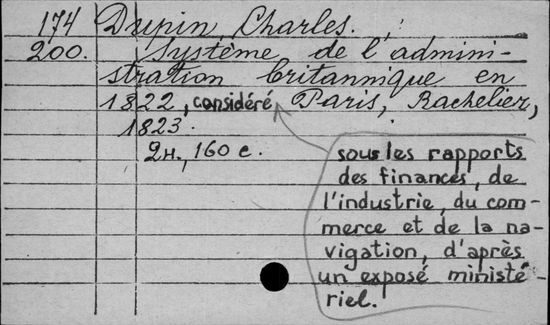 174 Dupin, Charles.
200. Système de l'admini-
stration britannique en
1822, considéré Paris, Bachelier,
1823.
2н., 160 с.
sous les rapports
des finances, de
l'industrie, du com-
merce et de la na-
vigation, d'après
un exposé ministé-
riel.